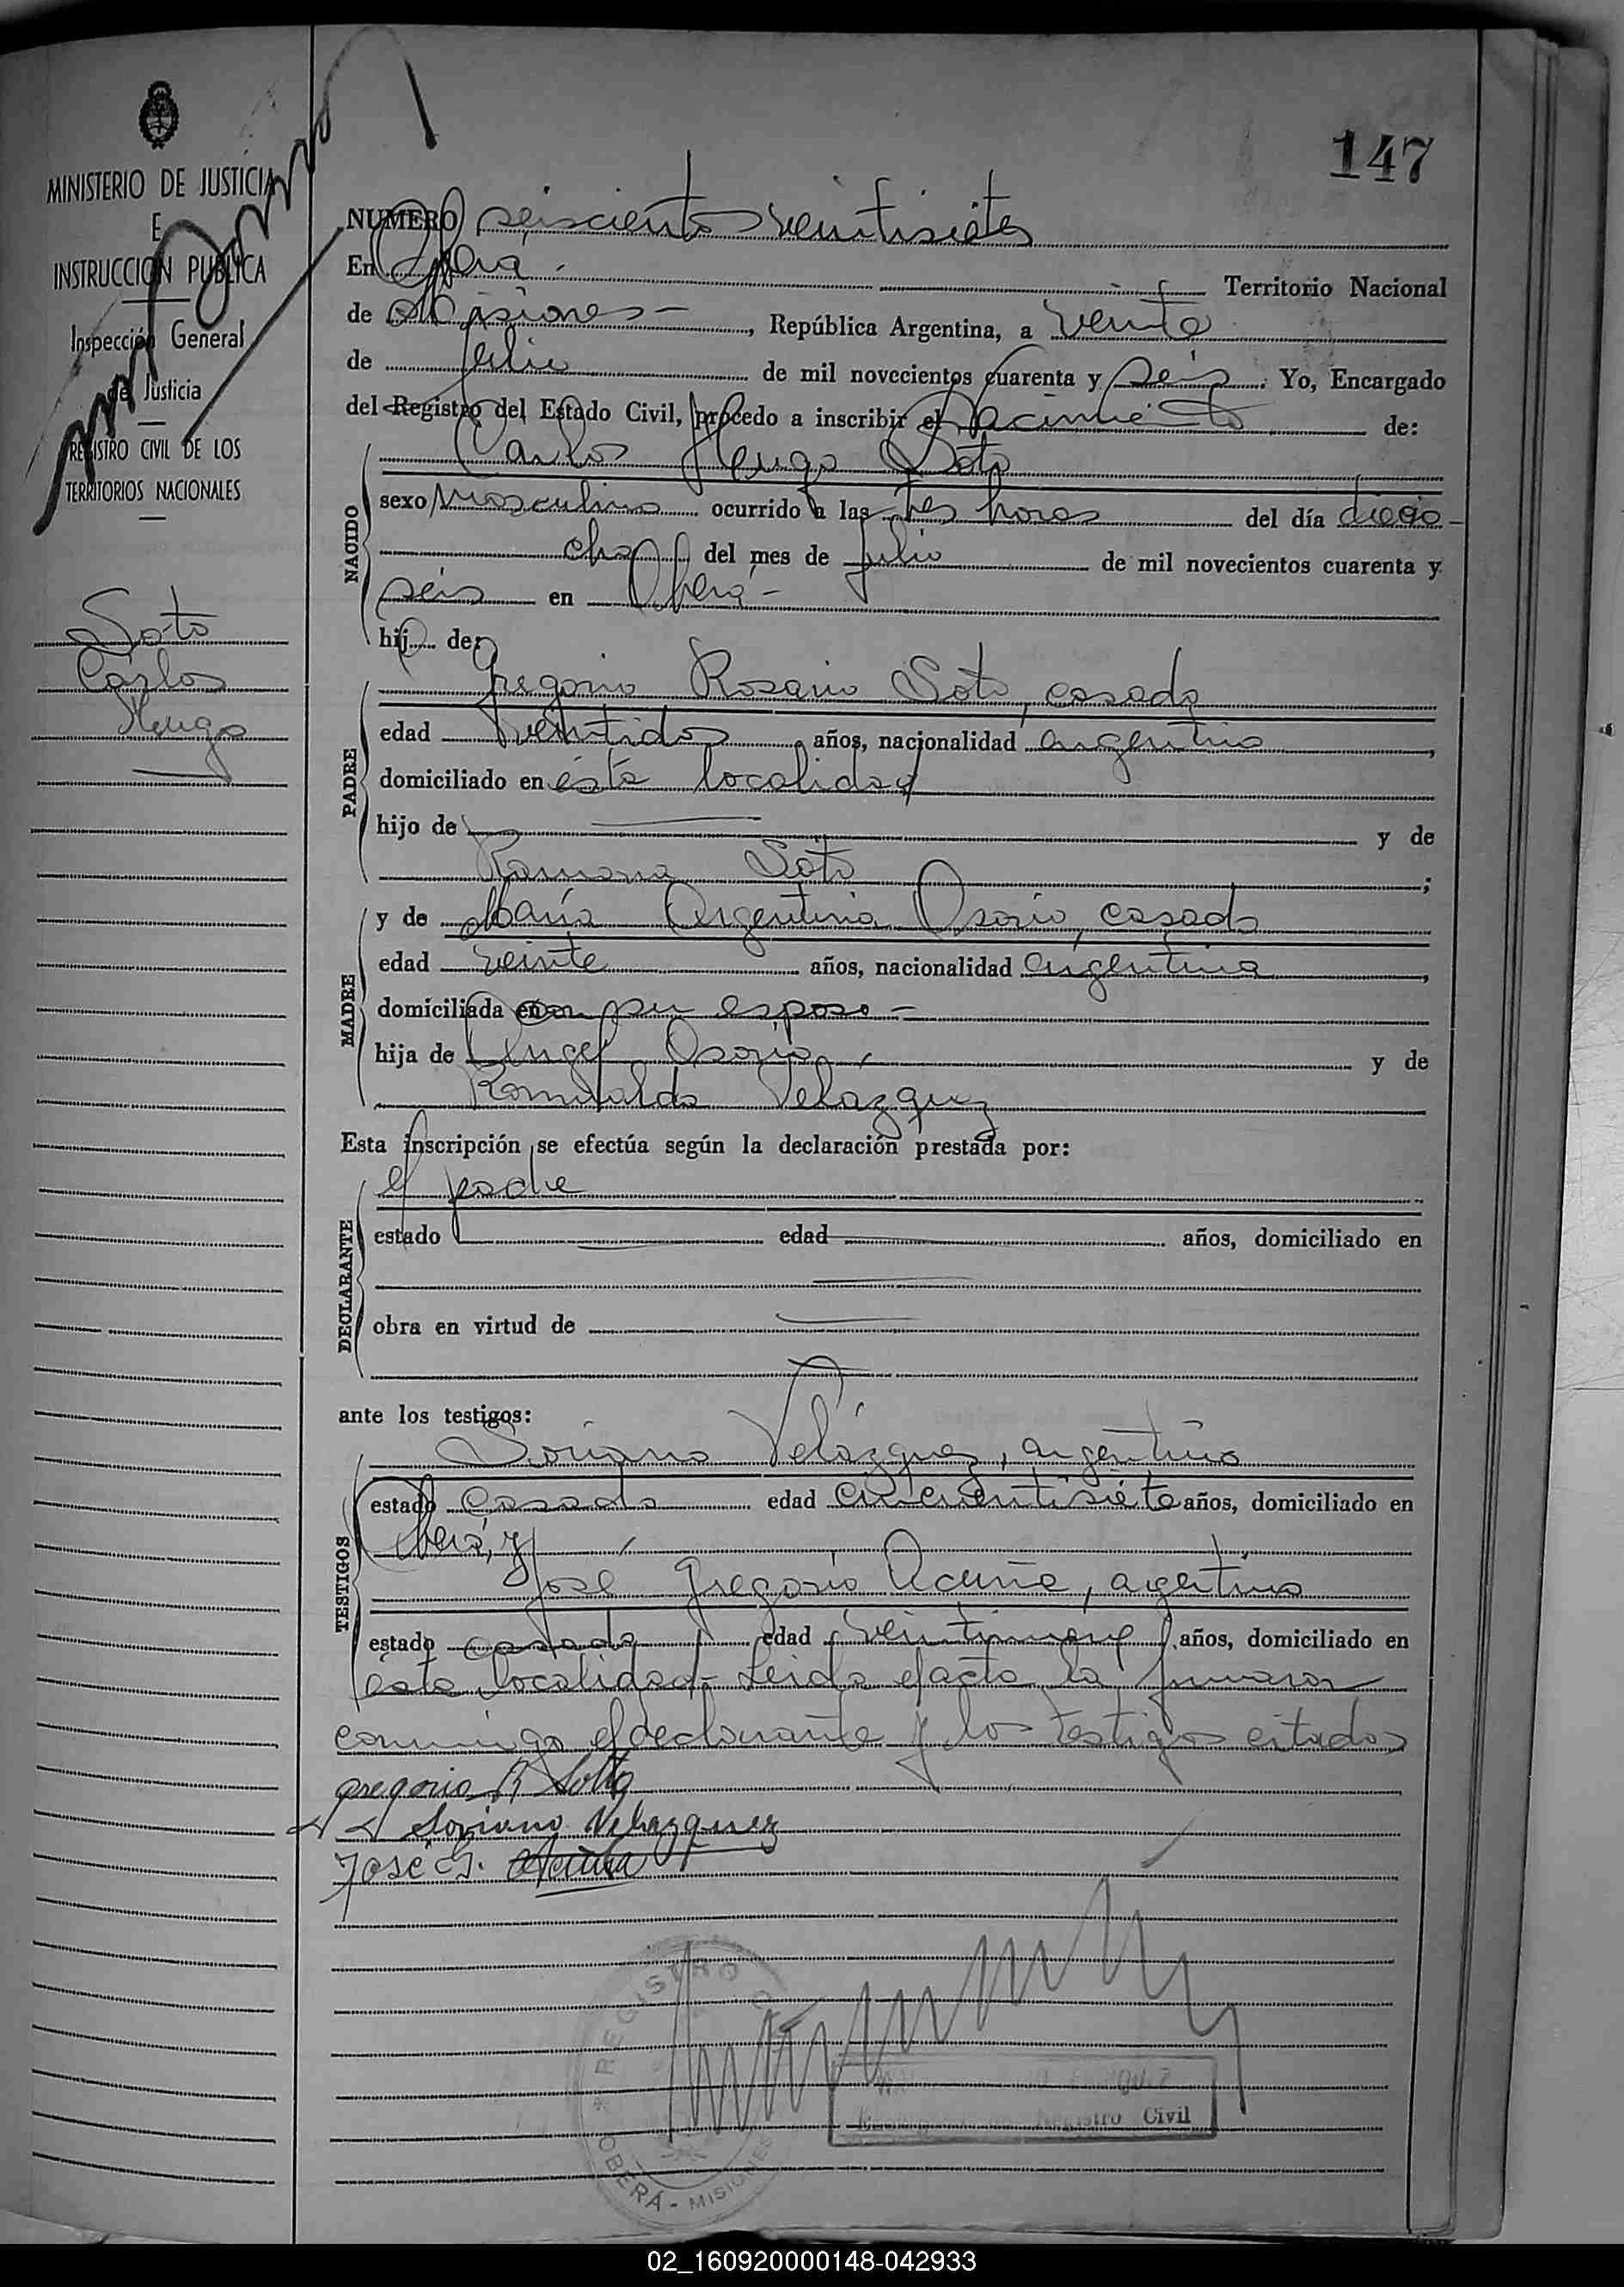 147
MINISTERIO DE JUSTICIA
E
INSTRUCCION PUBLICA
Inspección General
de Justicia
REGISTRO CIVIL DE LOS
TERRITORIOS NACIONALES
Soto
Carlos
Hugo
NUMERO seiscientos veintisiete
En Oberá. Territorio Nacional
de Misiones - , República Argentina, a veinte
de Julio de mil novecientos cuarenta y séis. Yo, Encargado
del Registro del Estado Civil, procedo a inscribir el Nacimiento de:
NACIDO
Carlos Hugo Soto
sexo masculino ocurrido a las tres horas del día dieci-
ocho del mes de Julio de mil novecientos cuarenta y
séis en Oberá -
hijo de:
PADRE
Gregorio Rosario Soto, casado
edad veintidos años, nacionalidad argentino,
domiciliado en ésta localidad
hijo de — y de
Ramona Soto ;
MADRE
y de María Argentina Osorio, casada
edad veinte años, nacionalidad argentina,
domiciliada en con su esposo -
hija de Angel Osorio y de
Romualda Velázquez
Esta inscripción se efectúa según la declaración prestada por:
DECLARANTE
el padre
estado — edad — años, domiciliado en
—
obra en virtud de —
ante los testigos:
TESTIGOS
Soriano Velázquez, argentino
estado casado edad cincuentisiete años, domiciliado en
Oberá, y
José Gregorio Acuña, argentino
estado casado edad veintinueve años, domiciliado en
ésta localidad - Leida el acta la firmaron
conmigo el declarante y los testigos citados
gregorio R Soto
Soriano Velazquez
José G. Acuña
REGISTRO
OBERÁ - MISIONES
Registro Civil
02_160920000148-042933